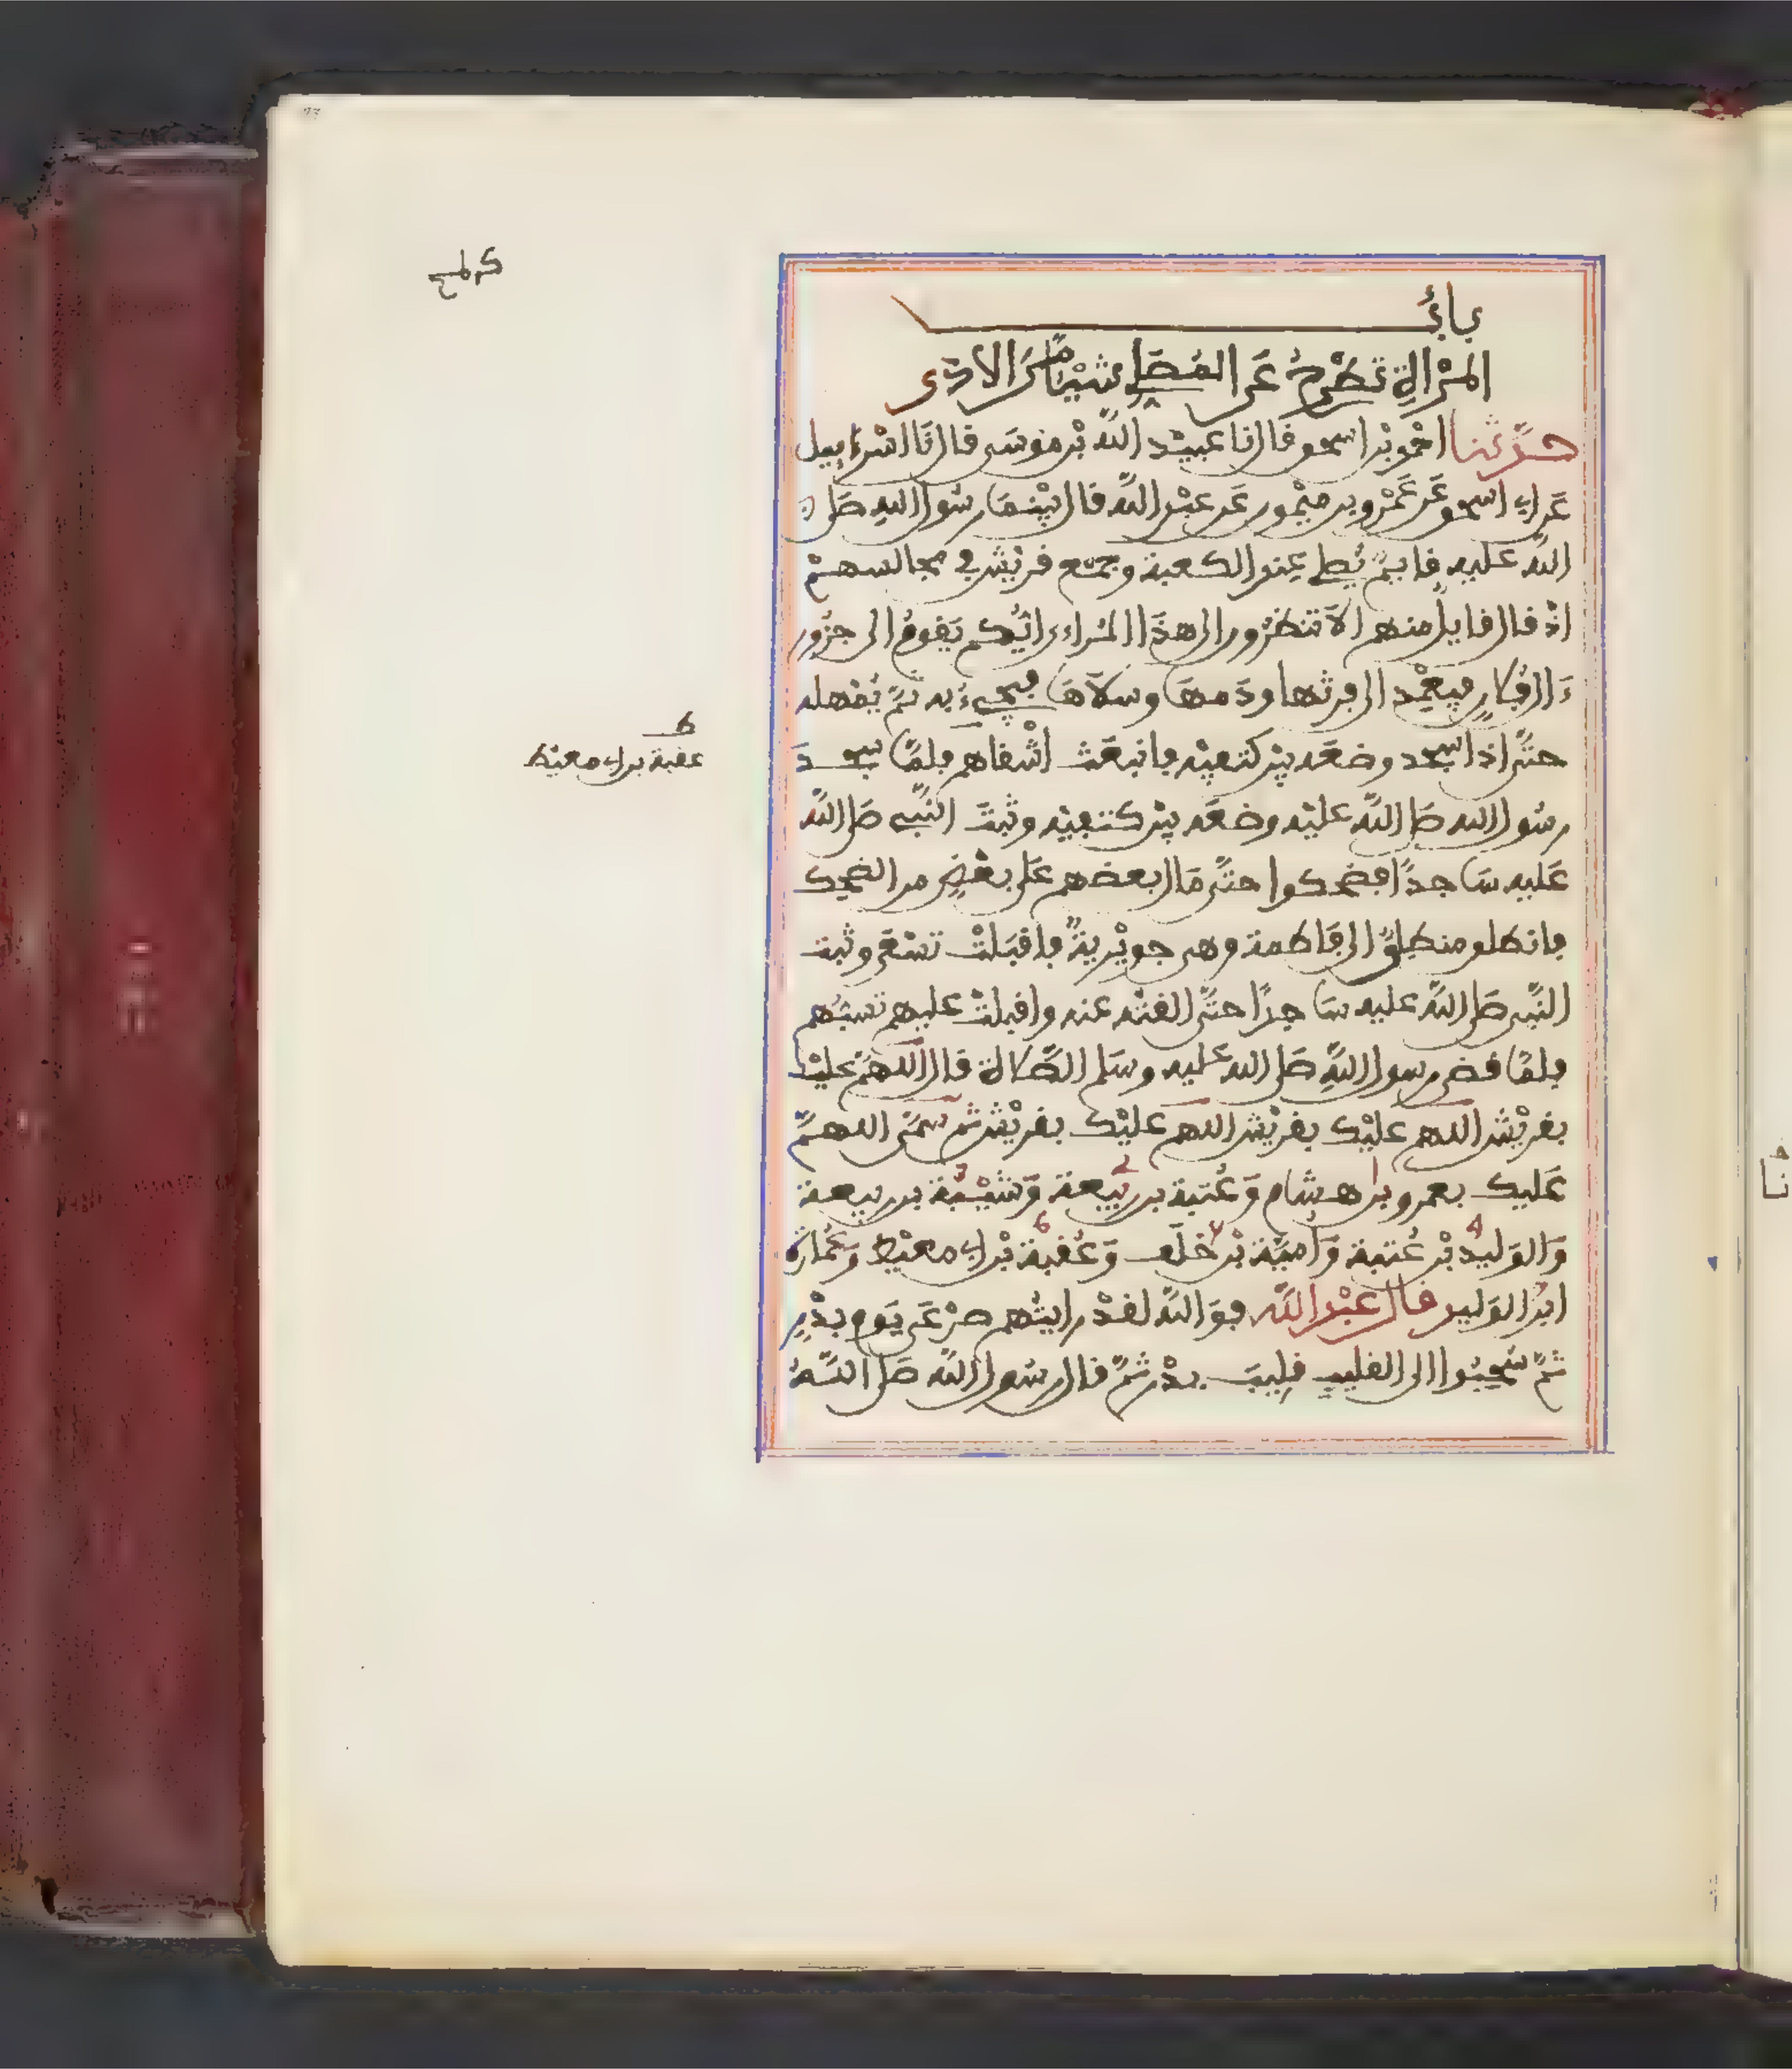 باب
المرأة تطرح عن المصلي شيئا من الاذى
حدثنا احمد بن اسحق قال نا عبيد الله بن موسى قال نا اسرءيل
عن ابي اسحق عن عمرو بن ميمون عن عبد الله قال بينما رسول الله صلى
الله عليه قايم يصلي عند الكعبة وجمع قريش في مجالسهم
اذ قال قايل منهم الا تنظرون الى هذا المراءي ايكم يقوم الى جزور
ءال فلان فيعمد الى فرثها ودمها وسلاها فيجيء به ثم يمهله
حتى اذا سجد وضعه بين كتفيه فانبعث اشقاهم فلما سجد
رسول الله صلى الله عليه وضعه بين كتفيه وثبت النبي صلى الله
عليه ساجدا فضحكوا حتى مال بعضهم على بعض من الضحك
فانطلق منطلق الى فاطمة وهي جويرية فاقبلت تسعى وثبت
النبي صلى الله عليه ساجدا حتى القته عنه واقبلت عليهم تسبهم
فلما قضى رسول الله صلى الله عليه وسلم الصلاة قال اللهم عليك
بقريش اللهم عليك بقريش اللهم عليك بقريش ثم سمى اللهم
عليك بعمرو بن هشام وعتبة بن ربيعة وشيبة بن ربيعة
والوليد بن عتبة وامية بن خلف وعقبة بن ابي معيط وعمارة
ابن الوليد قال عبد الله فوالله لقد رايتهم صرعى يوم بدر
ثم سحبوا الى القليب قليب بدر ثم قال رسول الله صلى الله
6
عقبة بن ابي معيط